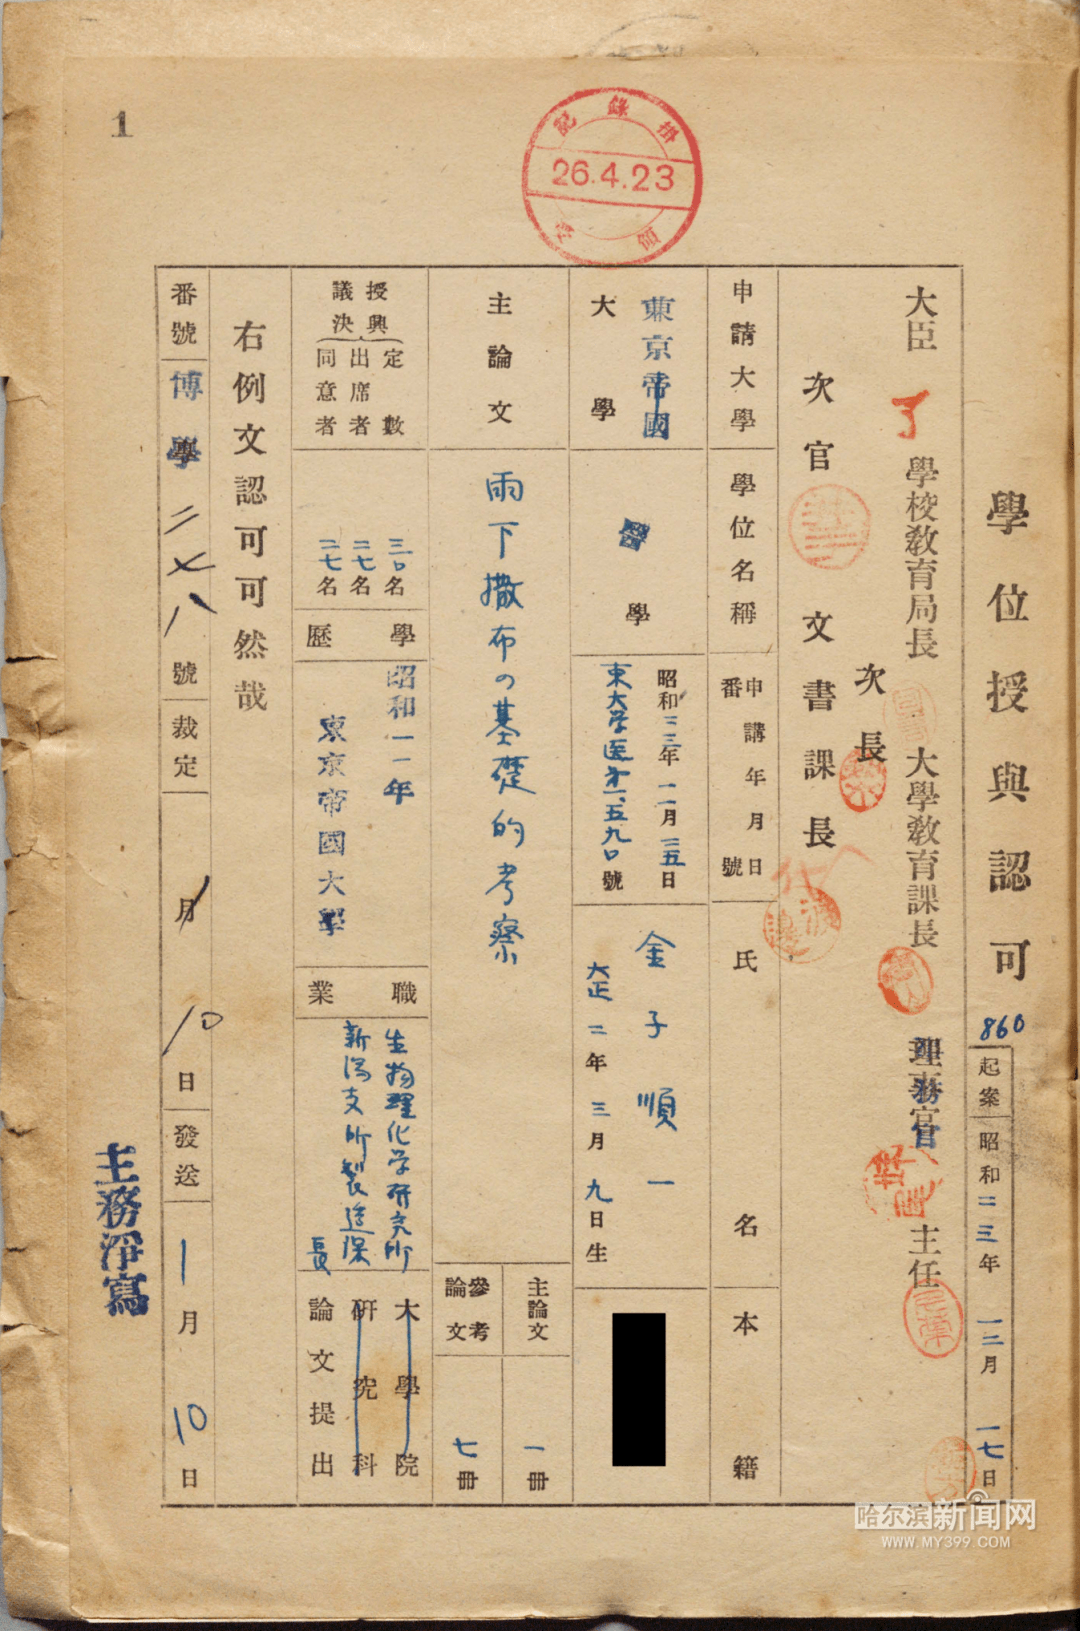 1
記錄掛
26.4.23
領
學位授與認可
860
起案 昭和二三年 一二月 一七日
大臣 了 學校教育局長 大學教育課長 主任
次長
次官 文書課長
渡邊
申請大學 學位名稱 申請年月日番號 氏名 本籍
東京帝國大學
醫學
昭和二三年一一月二五日
東大学医才一、五九〇號
金子順一
大正二年三月九日生
主論文
雨下撒布の基礎的考察
主論文 一冊
參考論文 七冊
授與議決
定數 三〇名
出席者 二七名
同意者 二七名
學歷
昭和一一年
東京帝國大學
職業
生物理化学研究所
新潟支所製造課長
大學院
研究科
論文提出
右例文認可可然哉
番號 博學二七八號 裁定 月10日 發送 1月10日
主務淨寫
哈尔滨新闻网
WWW.MY399.COM